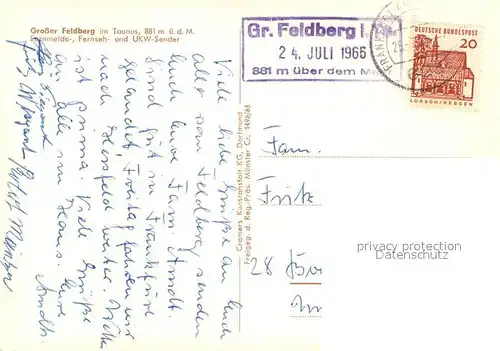 Großer Feldberg im Taunus, 881 m ü. d. M.
Fernmelde-, Fernseh- und UKW-Sender
Gr. Feldberg i.
24. JULI 1965
881 m über dem M
DEUTSCHE BUNDESPOST
20
LORSCH/HESSEN
Viele liebe Grüße an Euch
alle vom Feldberg, senden
Euch Eure Fam. Arndt.
Sind gut in Frankfurt
gelandet, Freitag fahren wir
nach Hersfeld weiter.
ist prima. Viele Grüße
an alle im Haus. Eure
Arndts.
Cramers Kunstanstalt KG, Dortmund
Freigeg. d. Reg.-Präs. Münster Cr. 1496/63
Fam.
Fritz
28
privacy protection
Datenschutz